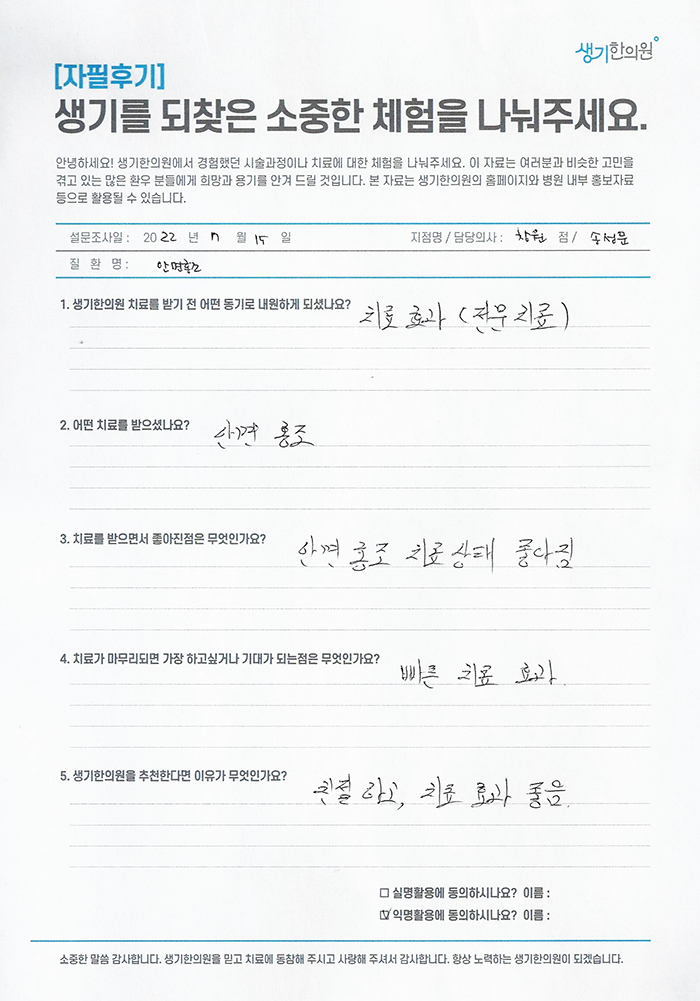 생기한의원
[자필후기]
생기를 되찾은 소중한 체험을 나눠주세요.
안녕하세요! 생기한의원에서 경험했던 시술과정이나 치료에 대한 체험을 나눠주세요. 이 자료는 여러분과 비슷한 고민을
겪고 있는 많은 환우 분들에게 희망과 용기를 안겨 드릴 것입니다. 본 자료는 생기한의원의 홈페이지와 병원 내부 홍보자료
등으로 활용될 수 있습니다.
설문조사일 : 2022 년 7 월 15 일 지점명 / 담당의사 : 창원 점 / 송성문
질 환 명 : 안면홍조
1. 생기한의원 치료를 받기 전 어떤 동기로 내원하게 되셨나요? 치료 효과 (전문 치료)
2. 어떤 치료를 받으셨나요? 안면 홍조
3. 치료를 받으면서 좋아진점은 무엇인가요? 안면 홍조 치료 상태 좋아짐
4. 치료가 마무리되면 가장 하고싶거나 기대가 되는점은 무엇인가요? 빠른 치료 효과.
5. 생기한의원을 추천한다면 이유가 무엇인가요? 친절 하고, 치료 효과 좋음.
□ 실명활용에 동의하시나요? 이름 :
☑ 익명활용에 동의하시나요? 이름 :
소중한 말씀 감사합니다. 생기한의원을 믿고 치료에 동참해 주시고 사랑해 주셔서 감사합니다. 항상 노력하는 생기한의원이 되겠습니다.